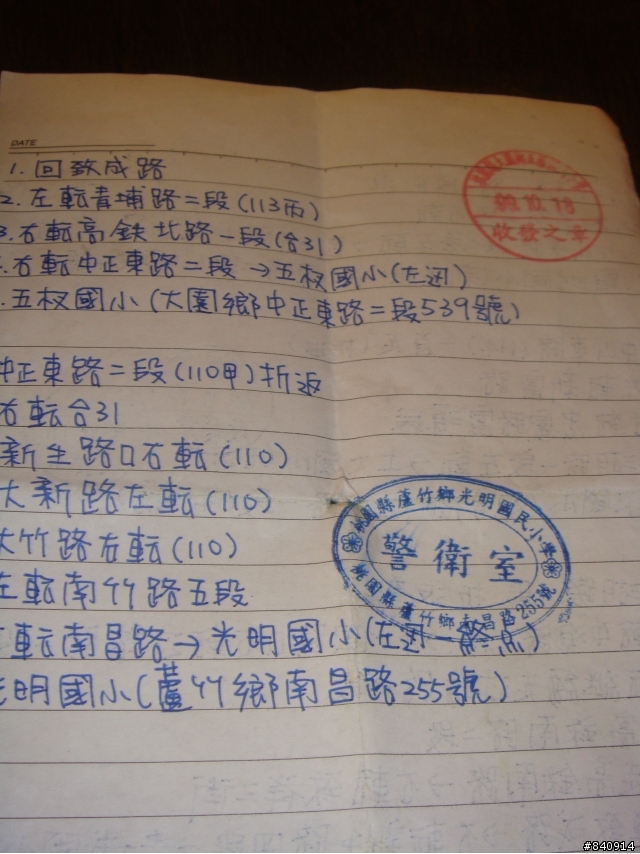 DATE
1. 回致成路
2. 左転青埔路二段(113丙)
3. 右転高鉄北路一段(台31)
. 右転中正東路二段→五权國小(左迴)
. 五权國小(大園鄉中正東路二段539號)
中正東路二段(110甲)折返
右転台31
新生路口右転(110)
大新路左転(110)
大竹路右転(110)
左転南竹路五段
転南昌路→光明國小(左迴-終点)
光明國小(蘆竹鄉南昌路255號)
收發之章
桃園縣蘆竹鄉光明國民小學
警衛室
桃園縣蘆竹鄉南昌路255號
#840914